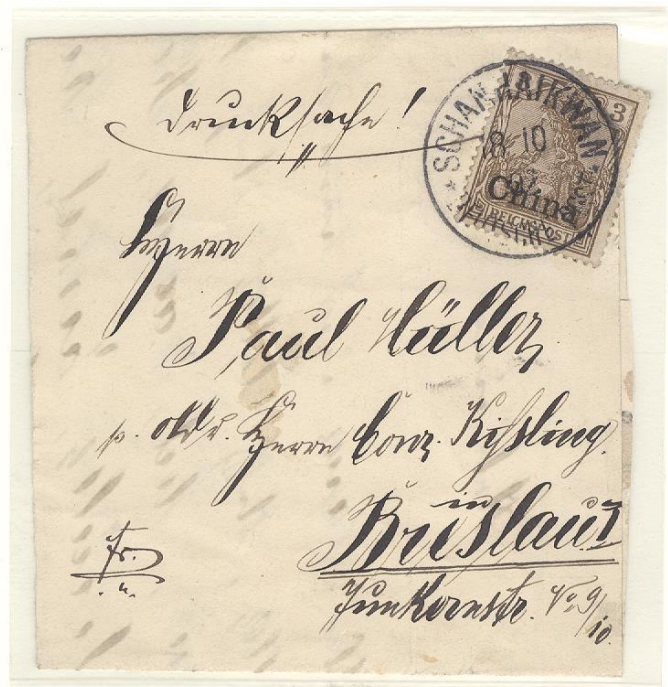 Drucksache!
SCHANHAIKWAN
18 10
02
3
China
REICHSPOST
Herrn
Paul Müller
p. adr. Herrn Conr. Kißling.
in
Breslau
fr.
Junkernstr. No 9/10.